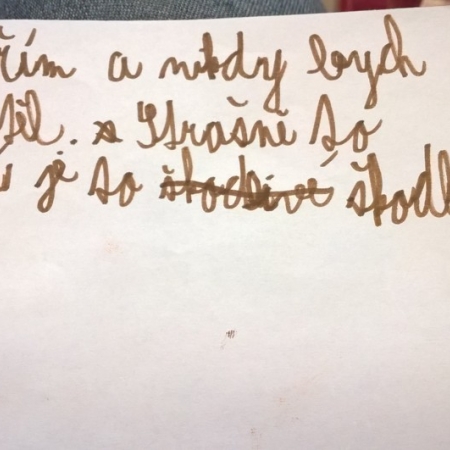 řím a nikdy bych
těl. Strašně to
je to škodlivé škodl